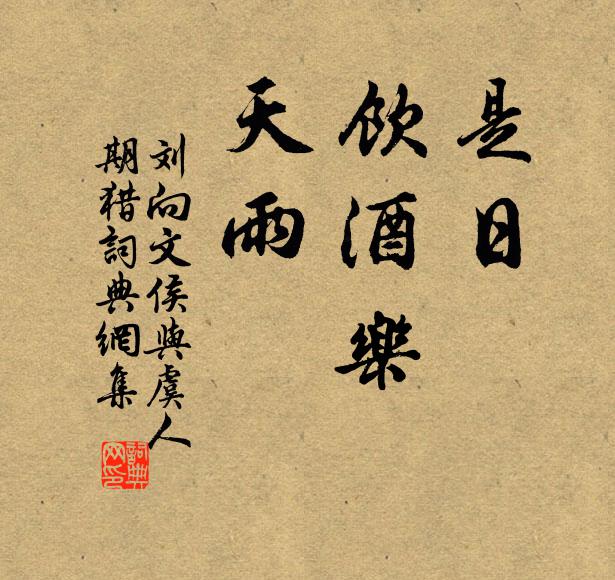 是日
飲酒樂
天雨
刘向文侯與虞人
期猎詞典網集
詞典
网印